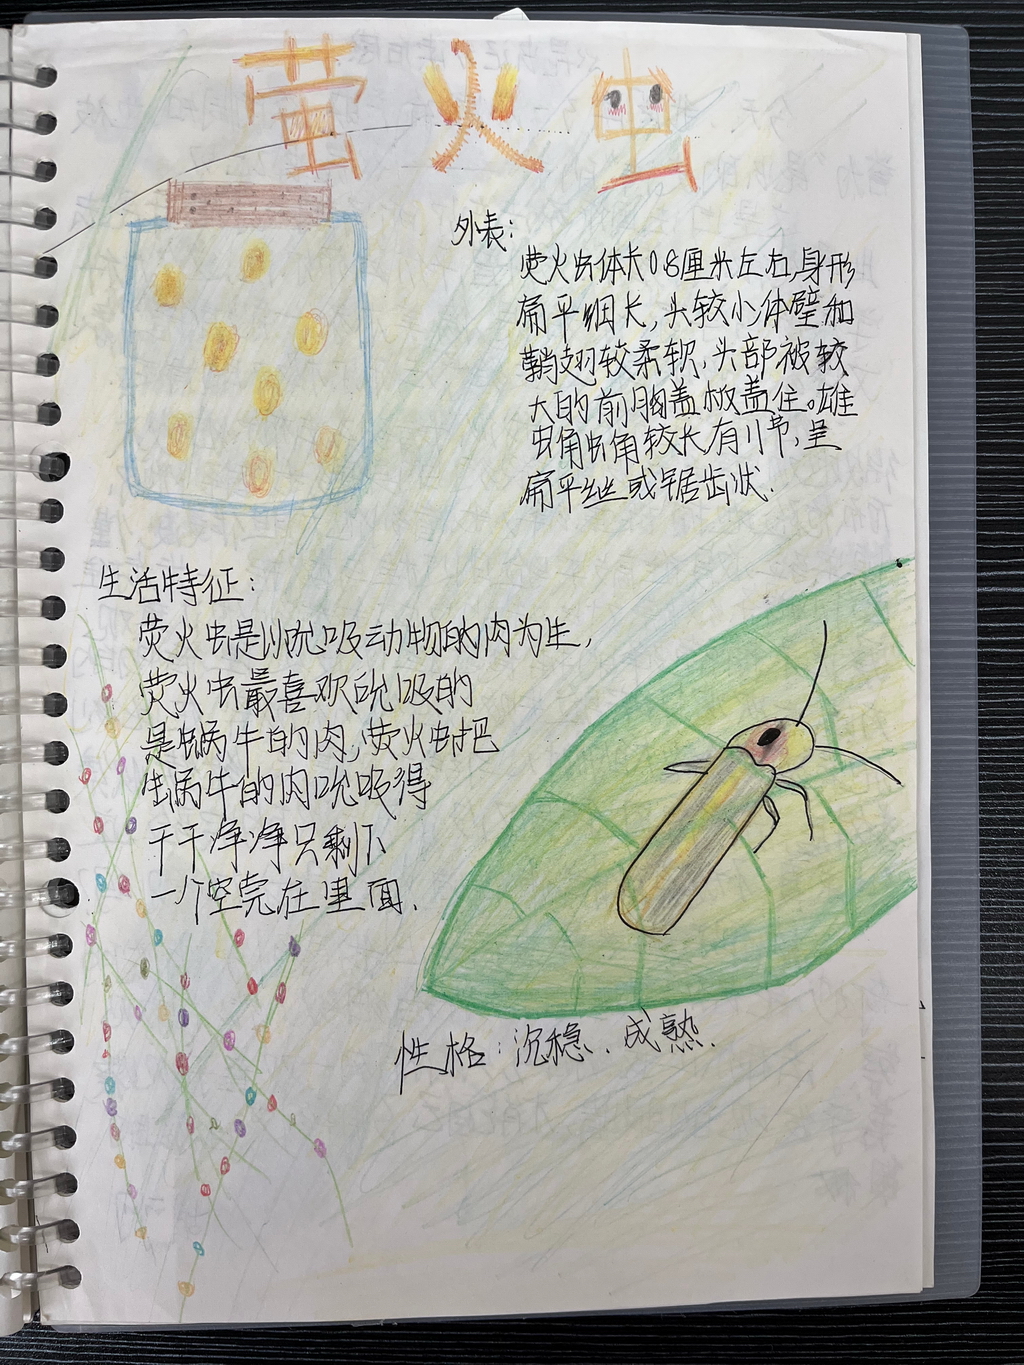 萤火虫
外表:
萤火虫体长0.8厘米左右,身形
扁平细长,头较小,体壁和
鞘翅较柔软,头部被较
大的前胸盖板盖住。雄
虫角虫角较长有11节,呈
扁平丝或锯齿状.
生活特征:
荧火虫是以吮吸动物的肉为生,
荧火虫最喜欢吮吸的
是蜗牛的肉,荧火虫把
蜗牛的肉吮吸得
干干净净只剩下
一个空壳在里面.
性格:沉稳、成熟.